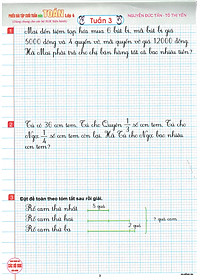 PHIẾU BÀI TẬP CUỐI TUẦN MÔN TOÁN Lớp 4
NGUYỄN ĐỨC TẤN - TÔ THỊ YẾN
Tuần 3
1 Mai đến tiệm tạp hóa mua 6 bút bi, mỗi bút bi giá
5000 đồng và 4 quyển vở, mỗi quyển vở giá 12000 đồng.
Hỏi Mai phải trả cho chị bán hàng tất cả bao nhiêu tiền?
2 Tú có 36 con tem. Tú cho Quyên 1/3 số con tem. Tú cho
Nga 1/4 số con tem còn lại. Hỏi Tú cho Nga bao nhiêu
con tem?
3 Đặt đề toán theo tóm tắt sau rồi giải.
Rổ cam thứ nhất
5 quả
Rổ cam thứ hai
? quả cam
Rổ cam thứ ba
7 quả